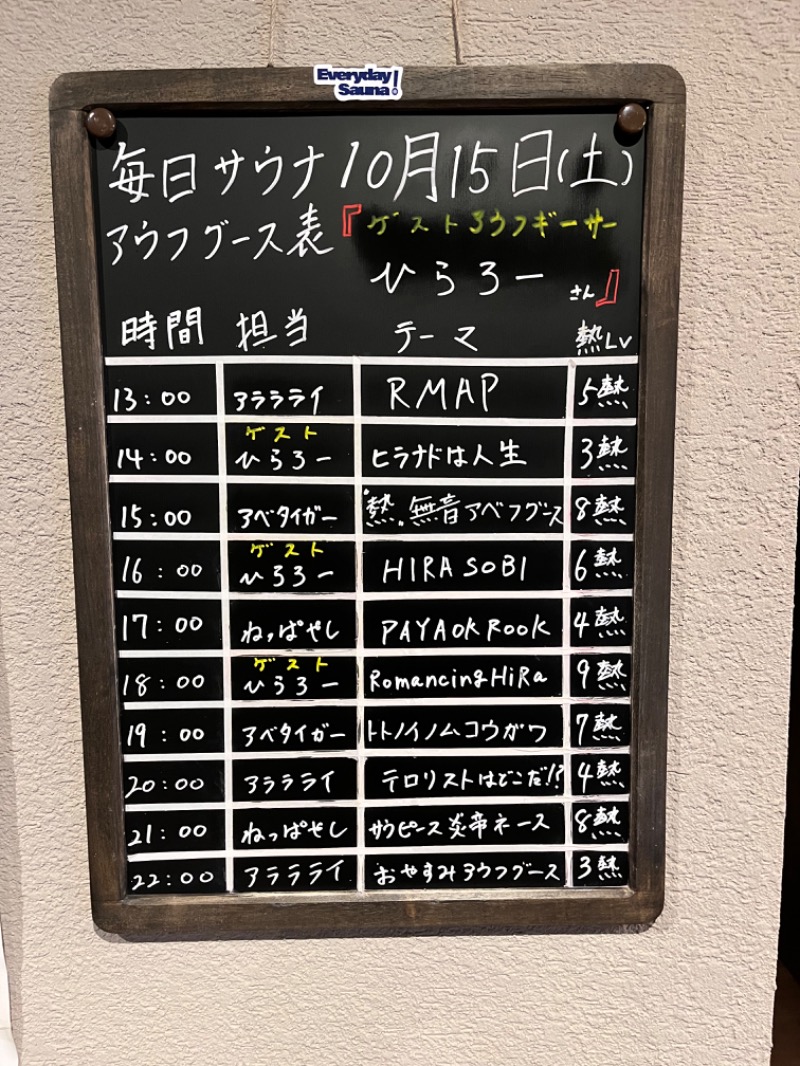 Everyday
Sauna!
毎日サウナ10月15日(土)
アウフグース表『ゲストアウフギーサー
ひらろー さん』
時間 担当 テーマ 熱Lv
13:00 アラララライ RMAP 5熱
ゲスト
14:00 ひらろー ヒラナドは人生 3熱
15:00 アベタイガー "熱"無音アベフグース 8熱
ゲスト
16:00 ひらろー HIRASOBI 6熱
17:00 ねっぱやし PAYAOKROOK 4熱
ゲスト
18:00 ひらろー RomancingHiRa 9熱
19:00 アベタイガー トトノイノムコウガワ 7熱
20:00 アラララライ テロリストはどこだ!? 4熱
21:00 ねっぱやし サウピース炎帝ネース 8熱
22:00 アラララライ おやすみアウフグース 3熱